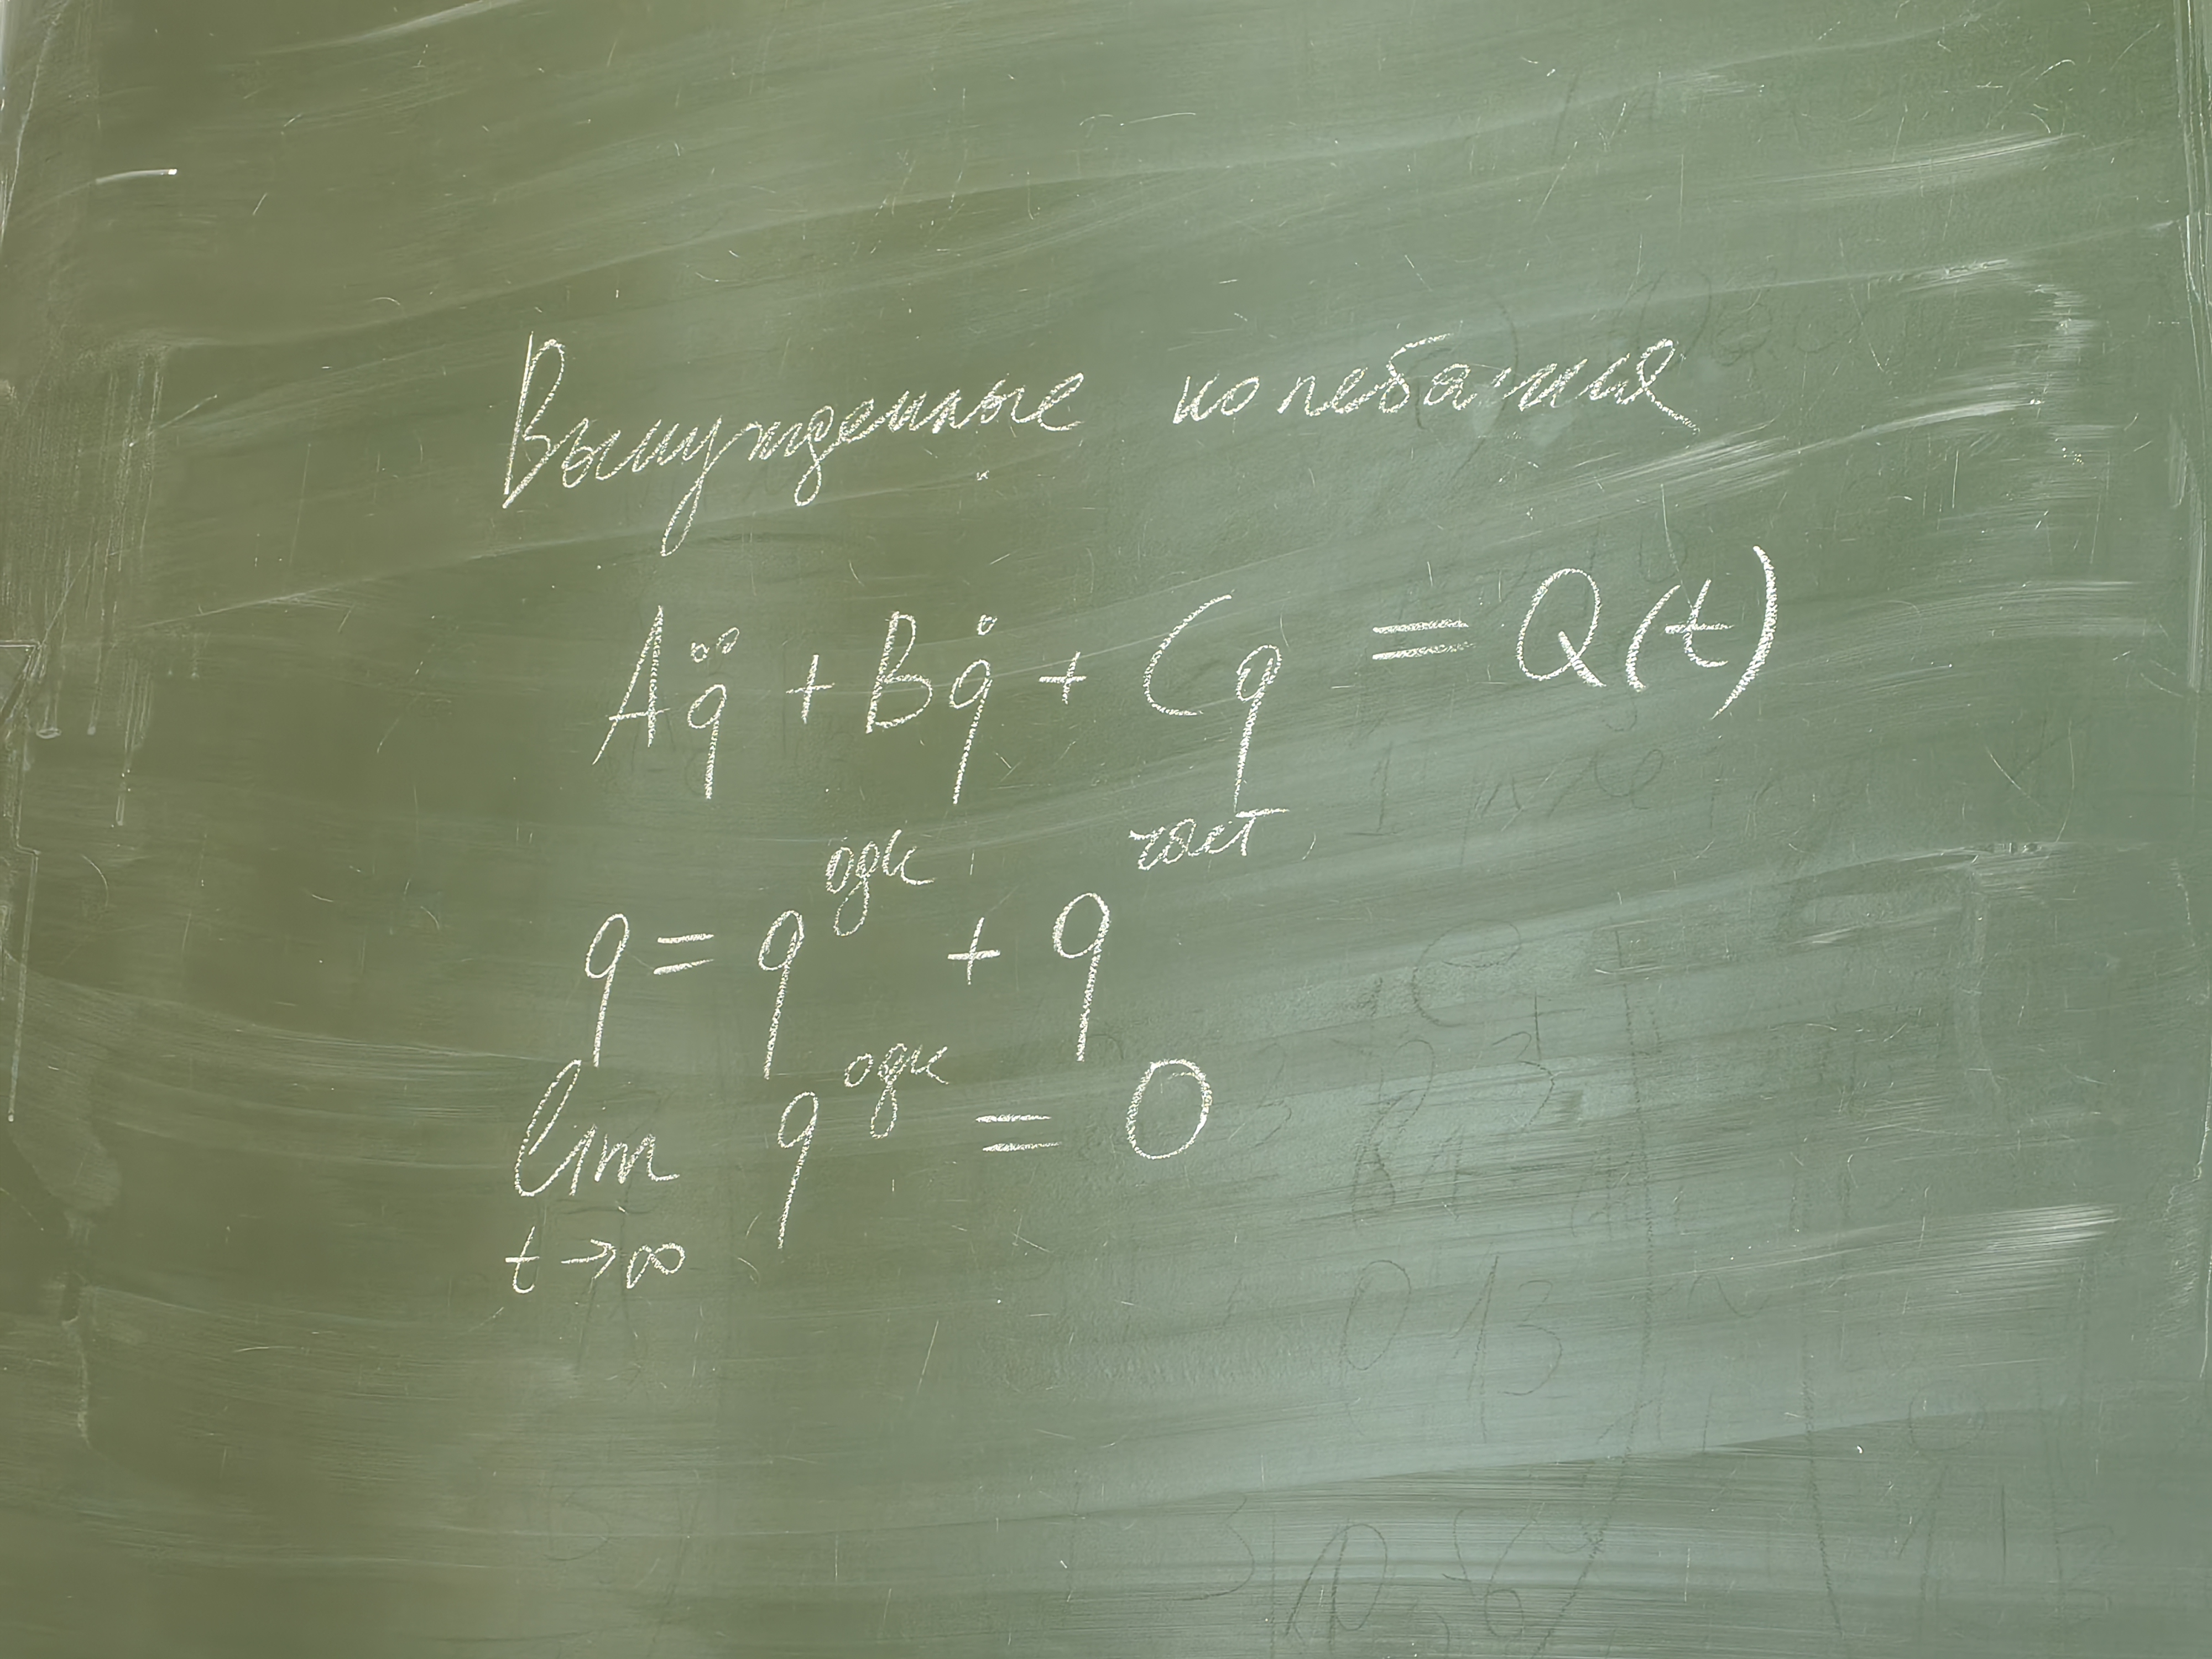 Вынужденные колебания
Aq̈ + Bq̇ + Cq = Q(t)
q = q^одн + q^част
lim q^одн = 0
t→∞